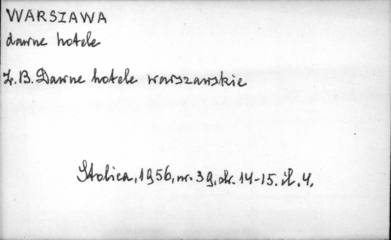 WARSZAWA
dawne hotele
Ł.B. Dawne hotele warszawskie
Stolica, 1956, nr. 39, str. 14-15. il. 4.